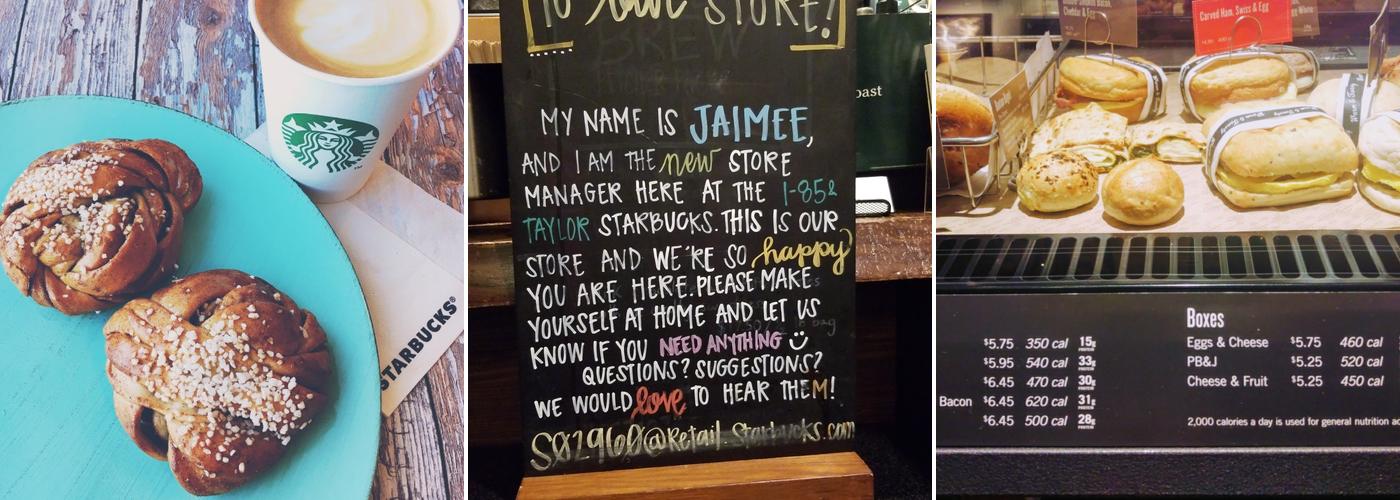 STARBUCKS®
TO your STORE!
BREW
MY NAME IS JAIMEE,
AND I AM THE new STORE
MANAGER HERE AT THE I-85&
TAYLOR STARBUCKS. THIS IS OUR
STORE AND WE'RE SO happy
YOU ARE HERE. PLEASE MAKE
YOURSELF AT HOME AND LET US
KNOW IF YOU NEED ANYTHING
QUESTIONS? SUGGESTIONS?
WE WOULD love TO HEAR THEM!
S02960@Retail.Starbucks.com
oast
Bacon,
Cheddar & Egg
Carved Ham, Swiss & Egg
$5.75 350 cal 15g PROTEIN
$5.95 540 cal 33g PROTEIN
$6.45 470 cal 30g PROTEIN
Bacon $6.45 620 cal 31g PROTEIN
$6.45 500 cal 28g PROTEIN
Boxes
Eggs & Cheese $5.75 460 cal
PB&J $5.25 520 cal
Cheese & Fruit $5.25 450 cal
2,000 calories a day is used for general nutrition